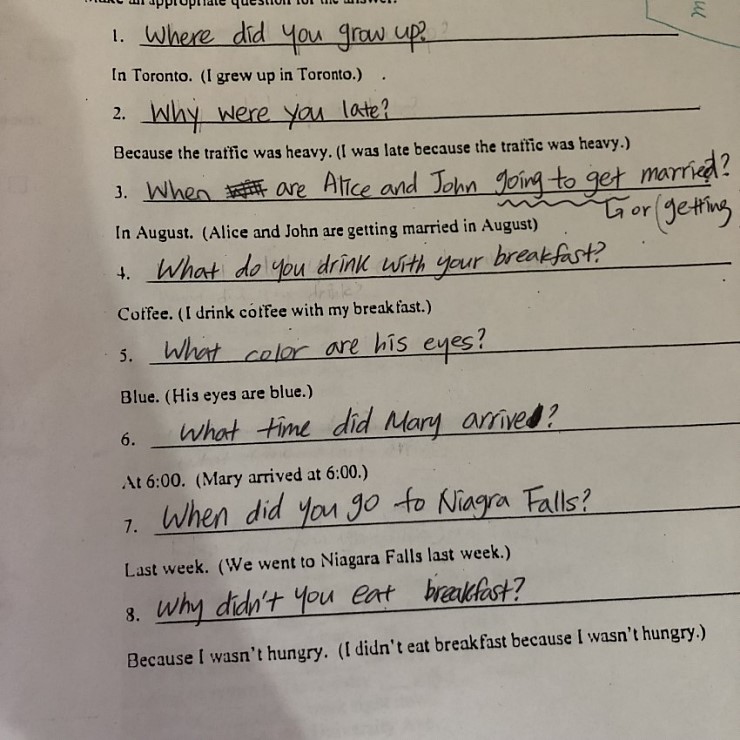 Make an appropriate question for the answer.
1. Where did you grow up?
In Toronto. (I grew up in Toronto.)
2. Why were you late?
Because the traffic was heavy. (I was late because the traffic was heavy.)
3. When are Alice and John going to get married?
or (getting
In August. (Alice and John are getting married in August)
4. What do you drink with your breakfast?
Coffee. (I drink coffee with my breakfast.)
5. What color are his eyes?
Blue. (His eyes are blue.)
6. What time did Mary arrive?
At 6:00. (Mary arrived at 6:00.)
7. When did you go to Niagra Falls?
Last week. (We went to Niagara Falls last week.)
8. Why didn't you eat breakfast?
Because I wasn't hungry. (I didn't eat breakfast because I wasn't hungry.)